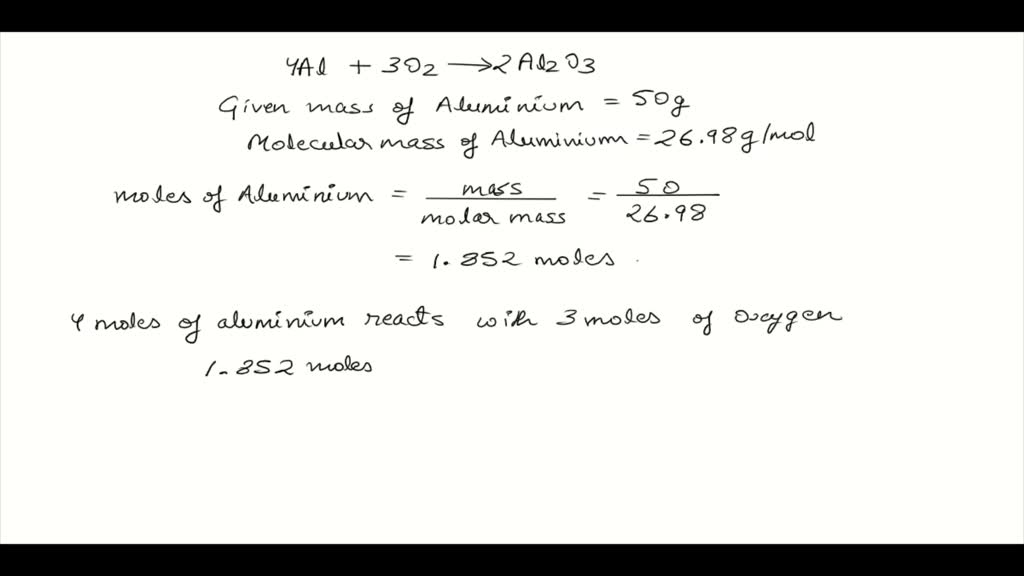 4Al + 3O2 → 2Al2O3
Given mass of Aluminium = 50g
Molecular mass of Aluminium = 26.98g/mol
moles of Aluminium = mass / molar mass = 50 / 26.98
= 1.852 moles
4 moles of aluminium reacts with 3 moles of oxygen
1.852 moles